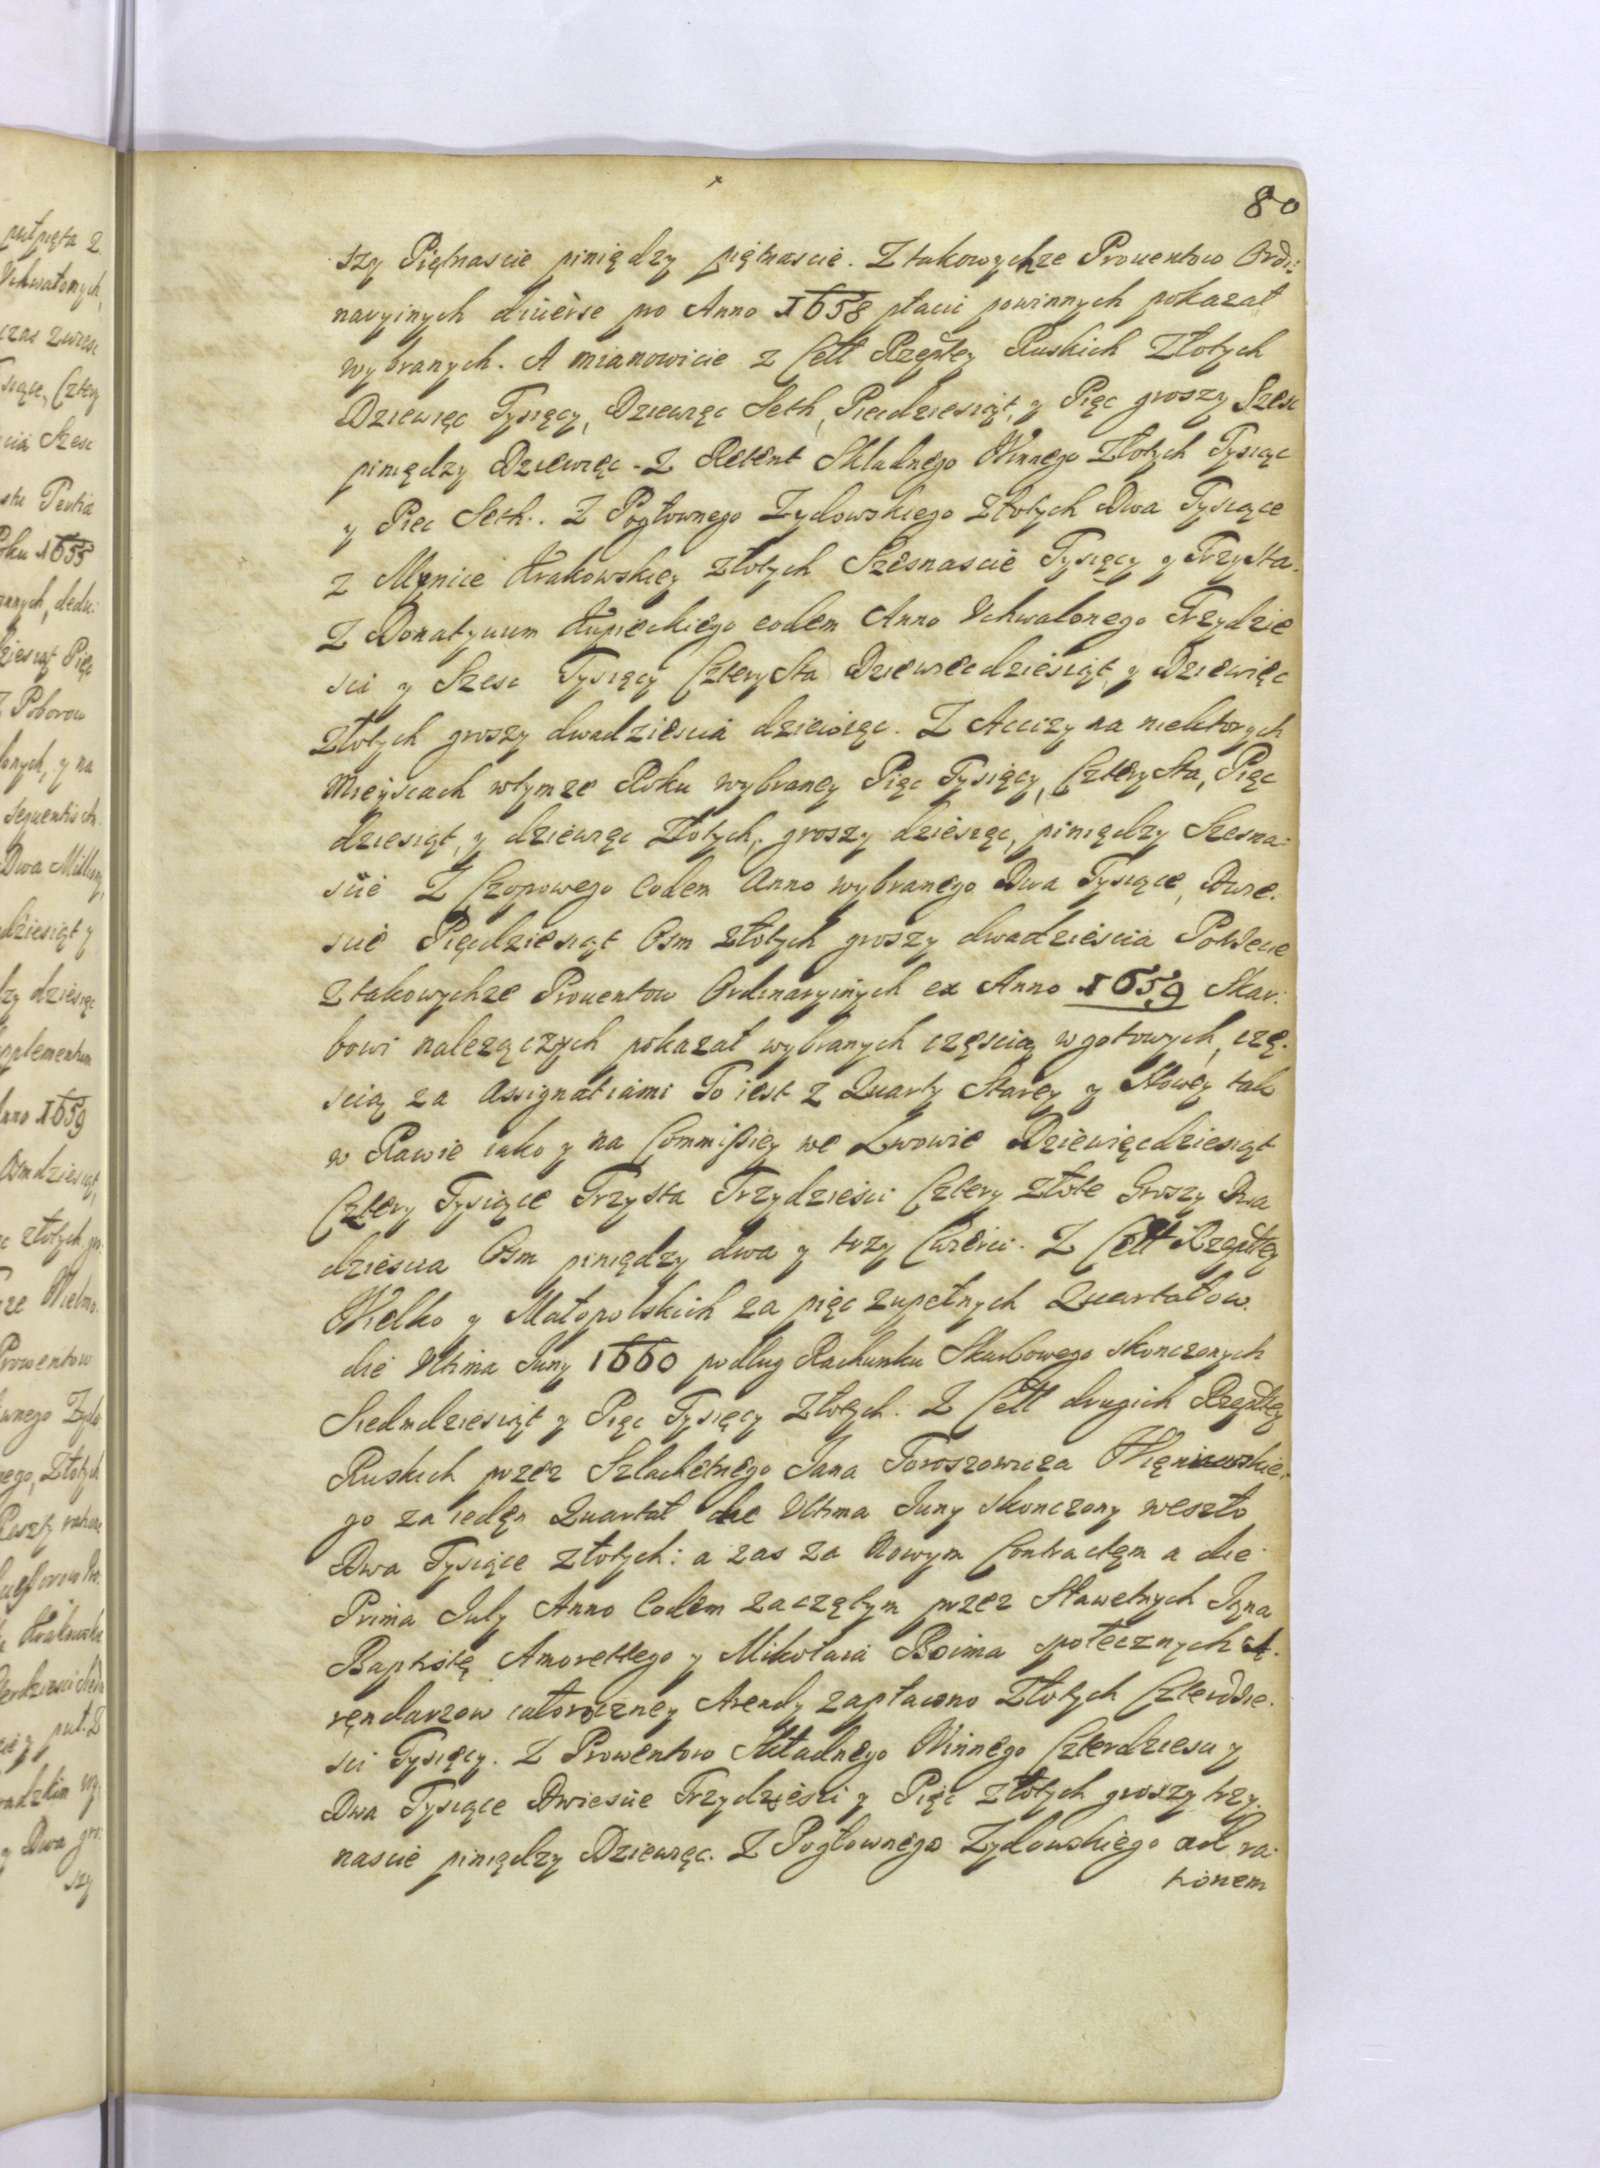 80
szy Piętnascie piniędzy piętnascie. Z takowychze Prouentow Ordi:
naryinych diuerse pro Anno 1658 płacic powinnych pokazał
wybranych. A mianowicie z Cełł Rzeptey Ruskich Złotych
Dziewięc Tysięcy, Dziewięc Seth, Piecdziesiąt, y Pięc groszy Szesc
piniędzy Dziewięc. Z Retent Składnego Winnego Złotych Tysiąc
y Piec Seth. Z Pogłownego Zydowskiego Złotych Dwa Tysiące
z Mynice Krakowskiey Złotych Szesnascie Tysięcy y Trzysta.
Z Donatyuum Kupieckiego eodem Anno Vchwalonego Trzydzie
sci y Szesc Tysięcy Czterysta Dziewiecdziesiąt y Dziewięc
Złotych groszy dwadziescia dziewięc. Z Accizy na niektorych
Mieyscach wtymze Roku wybraney Pięc Tysięcy, Czterysta, Pięc
dziesiąt, y dziewięc Złotych, groszy dziesięc, piniędzy Szesna:
scie Z Czopowego Eodem Anno wybranego Dwa Tysiące, Dwie.
scie Pięcdziesiąt Osm złotych groszy dwadziescia
Z takowychze Prouentow Ordinaryinych ex Anno 1659 Skar:
bowi nalezączych pokazał wybranych częscią w gotowych, czę.
scią za Assignatiami To iest z Quarty Starey y Nowey tak
w Rawie iako y na Commissiey we Lwowie Dziewięcdziesiąt
Cztery Tysiące Trzysta Trzydziesci Cztery złote Groszy Dwa
dziescia Osm piniędzy dwa y trzy Cwierci. Z Cełł Rzeptey
Wielko y Małopolskich za pięc zupełnych Quartałow
die Vltima Juny 1660 podług Rachunku Skarbowego skonczonych
Siedmdziesiąt y Pięc Tysięcy Złotych. Z Cełł drugich Rzeptey
Ruskich przez Szlachetnego Jana Toroszowicza
go za ieden Quartał die Vltima Juny skonczony weszło
Dwa Tysiące złotych: a zas za Nowym Contractem a die
Prima July Anno Eodem zaczętym przez Sławetnych Jana
Baptistę Amorettego y Mikołaia Boima społecznych A.
rendarzow całoroczney Arendy zapłacono Złotych Czterdzie.
sci Tysięcy. Z Prowentow Składnego Winnego Czterdziesci y
Dwa Tysiące Dwiescie Trzydziesci y Pięc Złotych groszy trzy.
nascie piniędzy Dziewięc. Z Pogłownego Zydowskiego ad ra:
tionem